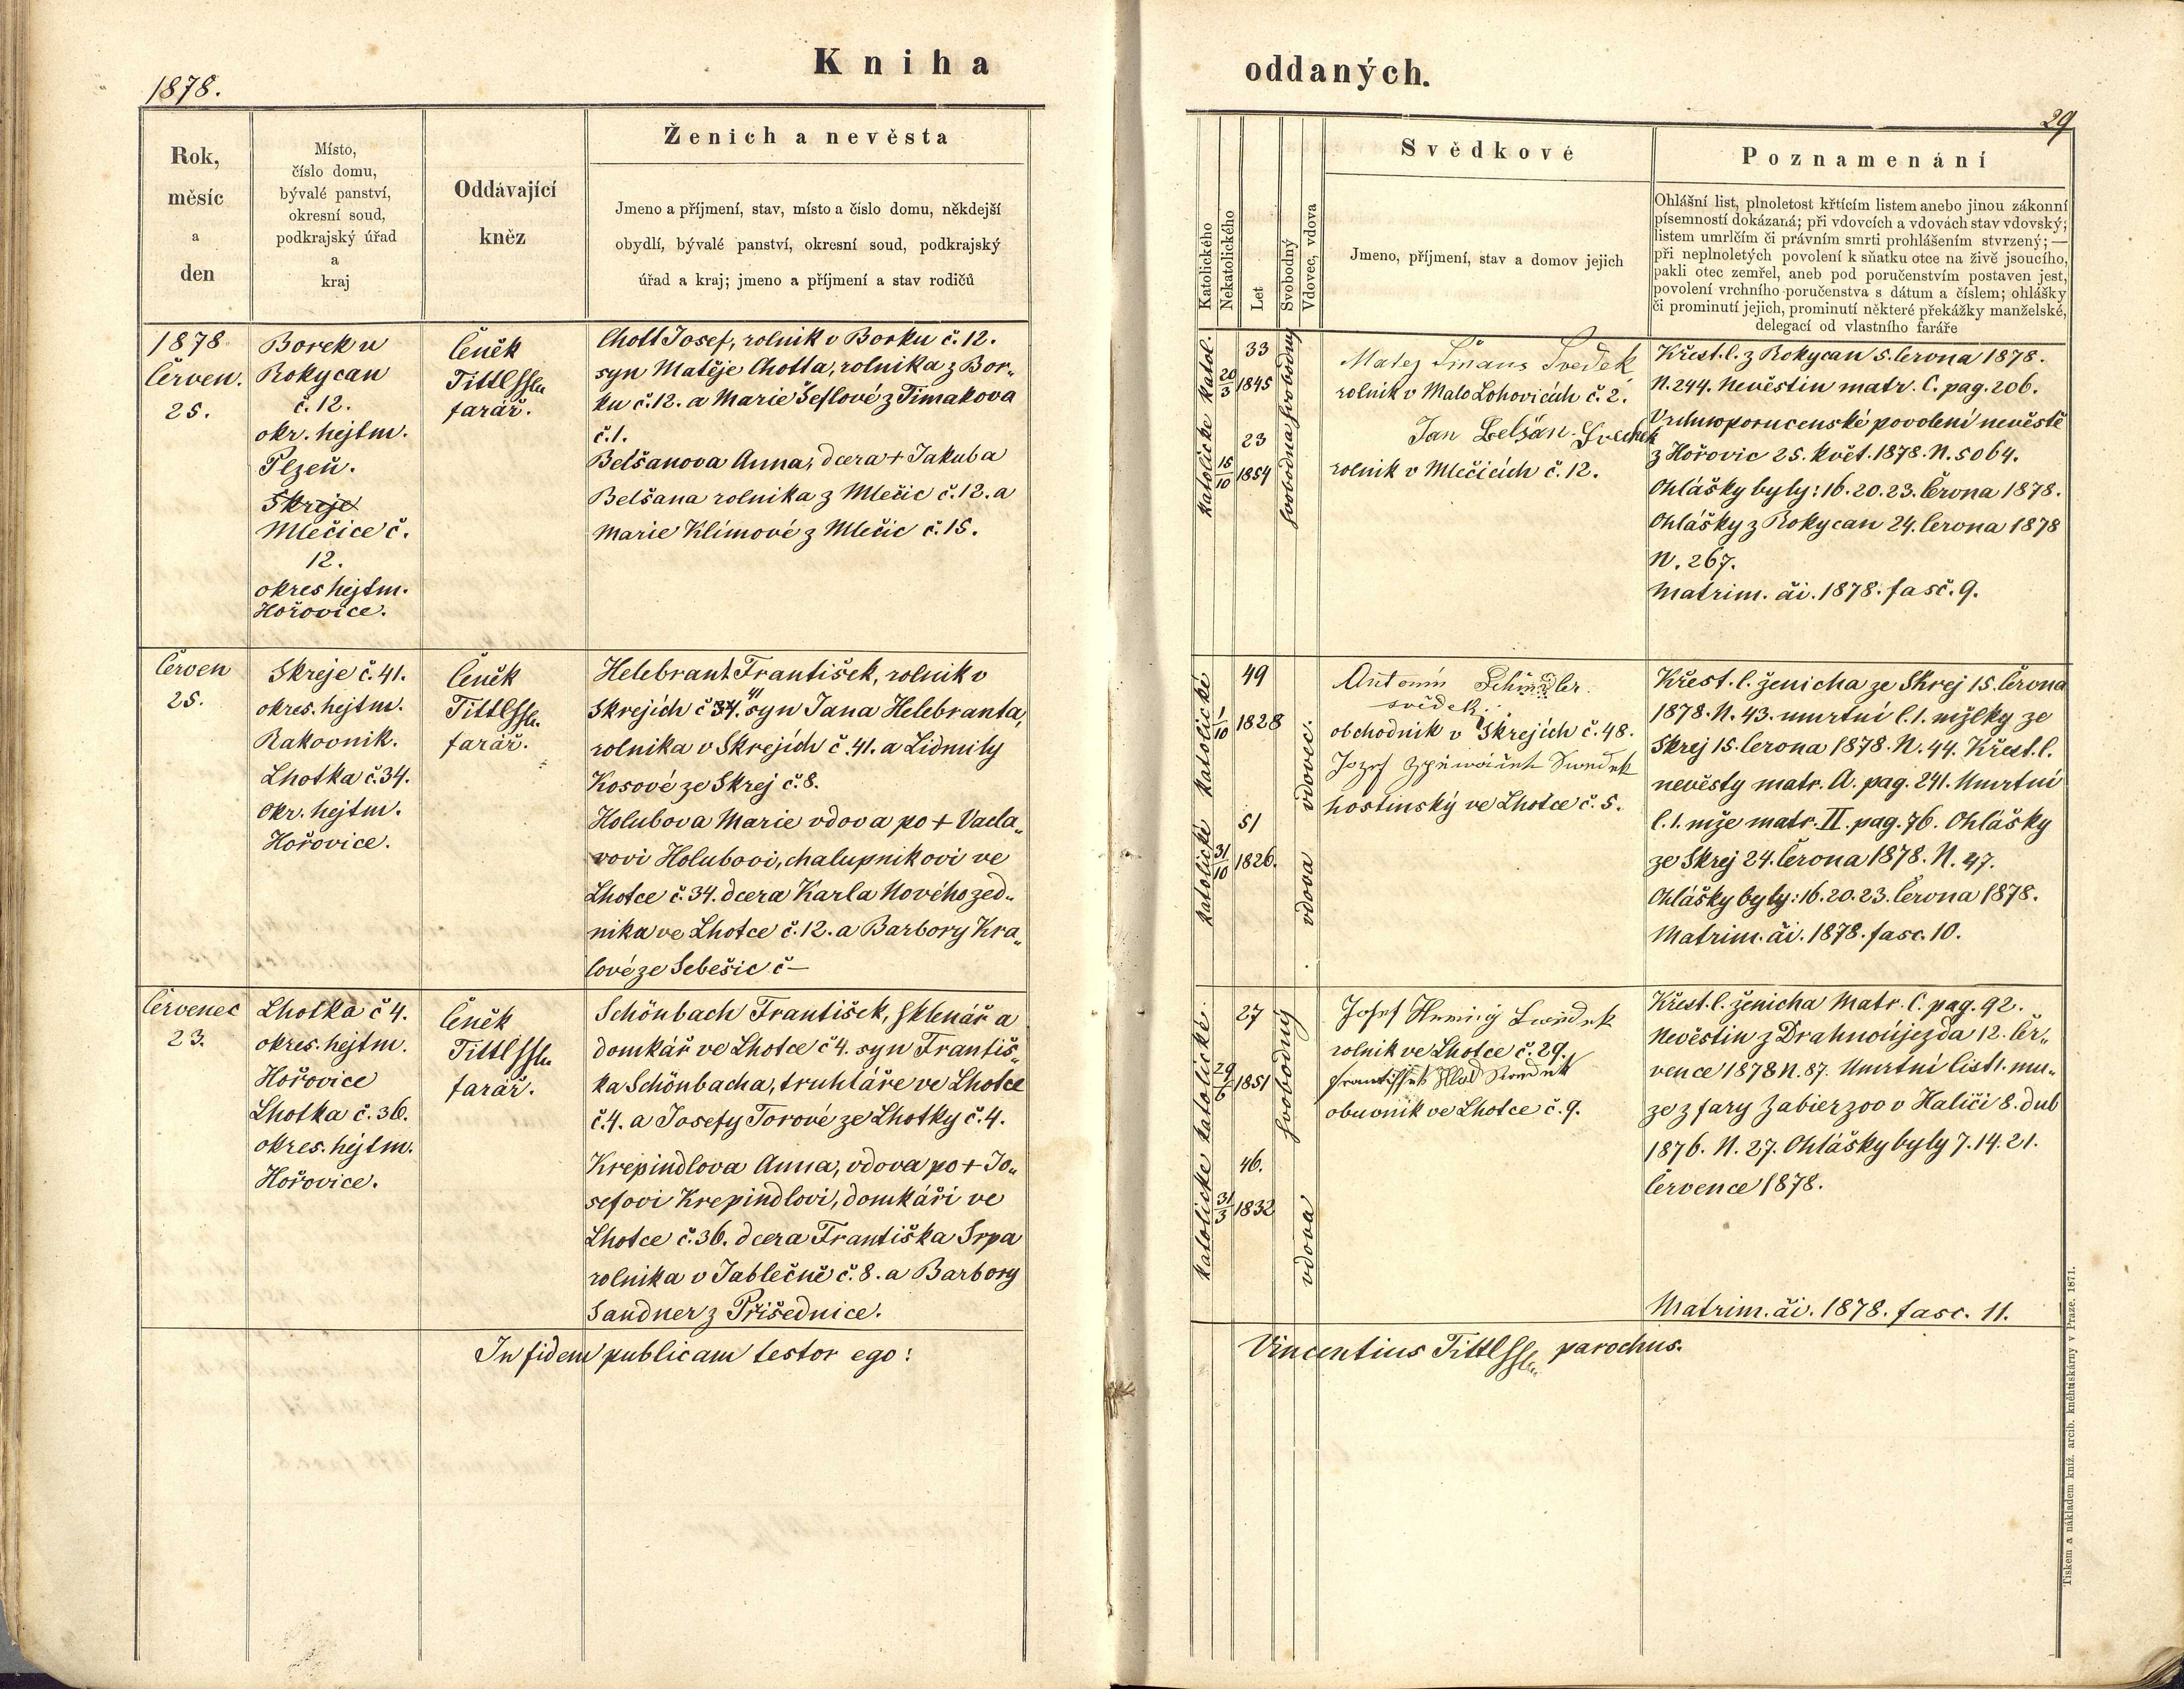 1878.
Kniha
Rok,
měsíc
a
den
Místo,
číslo domu,
bývalé panství,
okresní soud,
podkrajský úřad
a
kraj
Oddávající
kněz
Ženich a nevěsta
Jmeno a příjmení, stav, místo a číslo domu, někdejší
obydlí, bývalé panství, okresní soud, podkrajský
úřad a kraj; jmeno a příjmení a stav rodičů
1878
Červen.
25.
Borek u
Rokycan
č. 12.
okr. hejtm.
Plzeň.
Skreje
Mlečice č.
12.
okres hejtm.
Hořovice.
Čeněk
Tittl
farář.
Chott Josef, rolnik v Borku č. 12.
syn Matěje Chotta, rolnika z Bor„
ku č. 12. a Marie Šeflové z Timakova
č. 1.
Belšanova Anna, dcera + Jakuba
Belšana rolnika z Mlečic č. 12. a
Marie Klímové z Mlečic č. 15.
Červen
25.
Skreje č. 41.
okres. hejtm.
Rakovnik.
Lhotka č. 34.
Okr. hejtm.
Hořovice.
Čeněk
Tittl
farář.
Helebrant František, rolnik v
41
Skrejích č 34. syn Jana Helebranta,
rolnika v Skrejích č. 41. a Lidmily
Kosové ze Skrej č. 8.
Holubova Marie vdova po + Vacla„
vovi Holubovi, chalupnikovi ve
Lhotce č. 34. dcera Karla Nového zed„
nika ve Lhotce č. 12. a Barbory Kra„
lové ze Sebešic č —
Červenec
23.
Lhotka č 4.
okres. hejtm.
Hořovice
Lhotka č. 36.
okres. hejtm.
Hořovice.
Čeněk
Tittl
farář.
Schönbach František, sklenář a
domkář ve Lhotce č 4. syn Františ„
ka Schönbacha, truhláře ve Lhotce
č. 4. a Josefy Torové ze Lhotky č. 4.
Krepindlova Anna, vdova po + Jo„
sefovi Krepindlovi, domkáři ve
Lhotce č. 36. dcera Františka Srpa
rolnika v Jablečně č. 8. a Barbory
Sandner z Přišednice.
In fidem publicam testor ego:
oddaných.
29
Katolického
Nekatolického
Let
Svobodný
Vdovec, vdova
Svědkové
Jmeno, příjmení, stav a domov jejich
Poznamenání
Ohlášní list, plnoletost křtícím listem anebo jinou zákonní
písemností dokázaná; při vdovcích a vdovách stav vdovský;
listem umrlčím či právním smrti prohlášením stvrzený; —
při neplnoletých povolení k sňatku otce na živě jsoucího,
pakli otec zemřel, aneb pod poručenstvím postaven jest,
povolení vrchního poručenstva s dátum a číslem; ohlášky
či prominutí jejich, prominutí některé překážky manželské,
delegací od vlastního faráře
katolické katol.
33
20/3 1845
23
15/10 1854
svobodna svobodný
Matej Šmaus Svedek
rolnik v Malo Lohovicích č. 2.
Jan Belšan. Svedek
rolnik v Mlečicích č. 12.
Křest. l. z Rokycan 5. června 1878.
N. 244. Nevěstin matr. C. pag. 206.
Vrchnoporucenské povolení nevěstě
z Hořovic 25. květ. 1878. N. 5064.
Ohlášky byly: 16. 20. 23. Června 1878.
Ohlášky z Rokycan 24. června 1878
N. 267.
Matrim. ći. 1878. fasč. 9.
katolické katolické
49
1/10 1828
51
31/10 1826.
vdova vdovec.
Antonín
svědek.
obchodnik v Skrejích č. 48.
Jozef Zpěváček Swedek
hostinský ve Lhotce č. 5.
Křest. l. ženicha ze Skrej 15. června
1878. N. 43. umrtní l. 1. mžlky ze
Skrej 15. června 1878. N. 44. Křest. l.
nevěsty matr. A. pag. 241. Umrtní
l. 1. mže matr. II. pag. 76. Ohlášky
ze Skrej 24. Června 1878. N. 47.
Ohlášky byly: 16. 20. 23. června 1878.
Matrim. ći. 1878. fasc. 10.
katolické katolické.
27
29/6 1851
46.
31/3 1832
vdova svobodný
Josef Swědek
rolnik ve Lhotce č. 29.
Frantissek Swedek
obuvnik ve Lhotce č. 9.
Křest. l. ženicha Matr. C. pag. 92.
Nevěstin z Drahnoújezda 12. čer„
vence 1878 N. 87. Umrtní list 1. mu„
ze z fary Zabierzoo v Haliči 8. dub
1876. N. 27. Ohlášky byly 7. 14. 21.
července 1878.
Matrim. ći. 1878. fasc. 11.
Vincentius Tittl parochus.
Tiskem a nákladem kníž. arcib. knéhtiskárny v Praze. 1871.